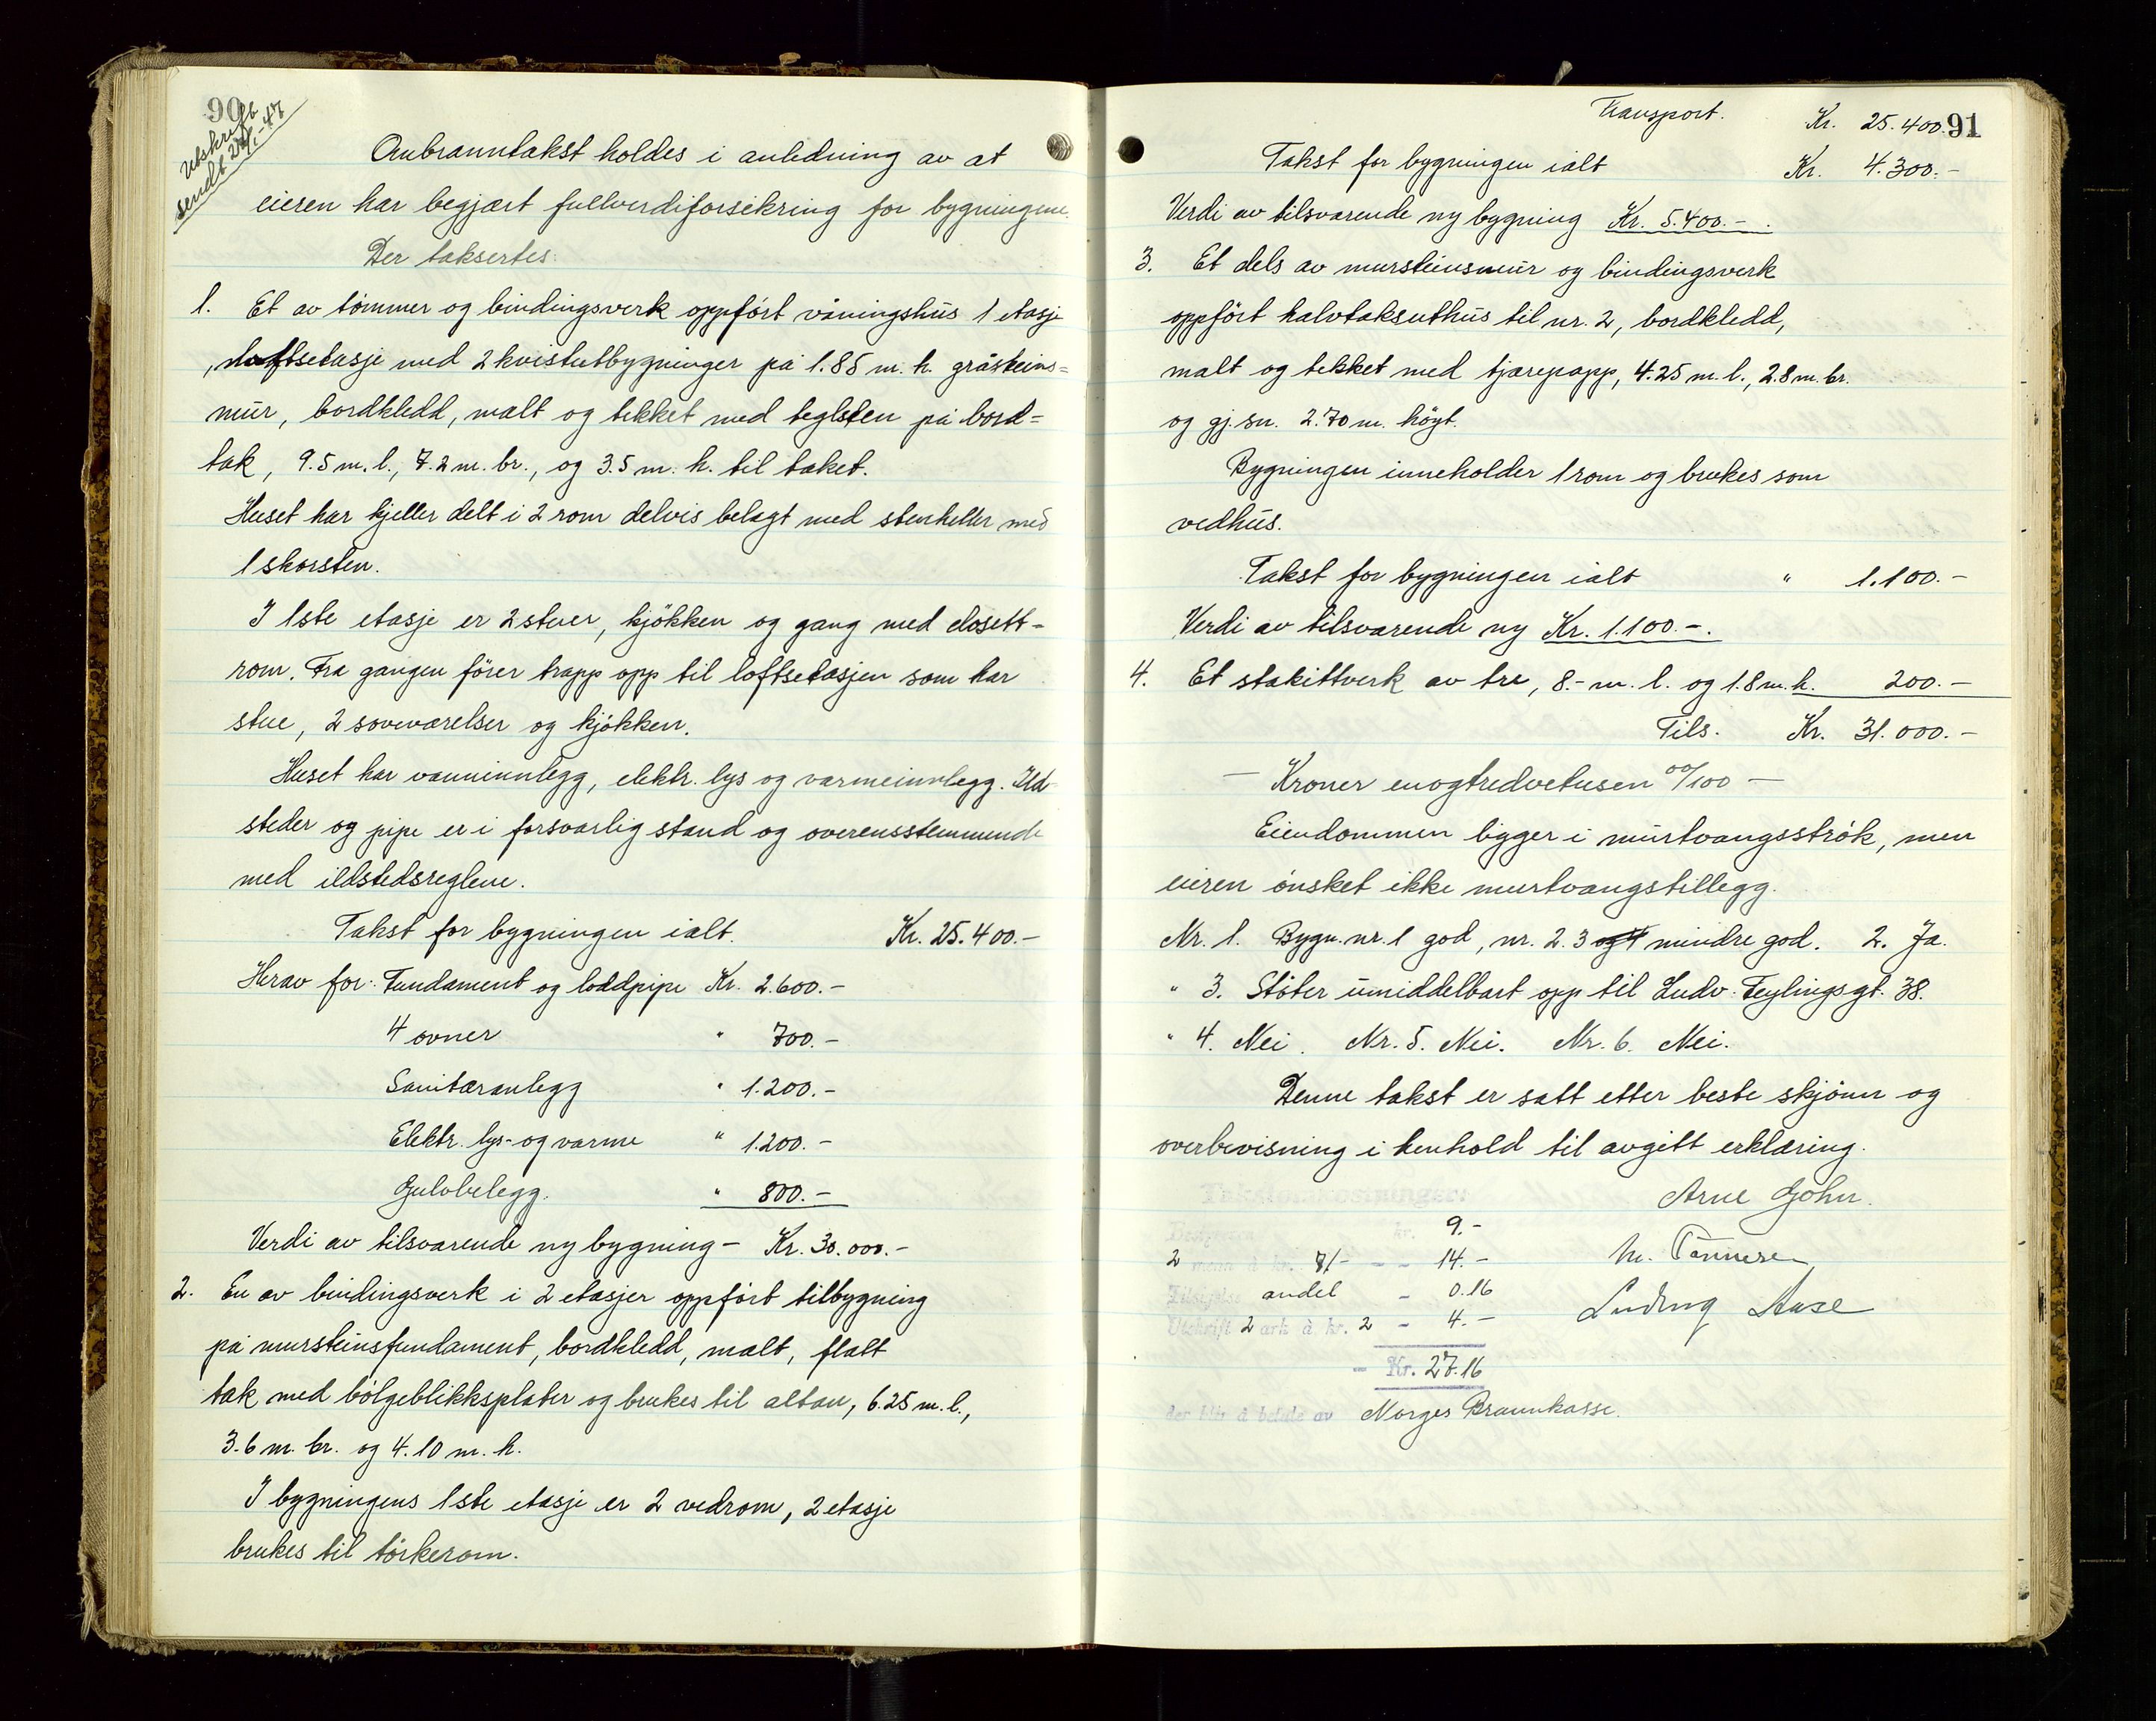 90
Utskrift
sendt 22/1-47
Ombranntakst holdes i anledning av at
eieren har begjært fullverdiforsikring for bygningene.
Der taksertes:
1. Et av tømmer og bindingsverk oppført våningshus 1 etasje
, loftsetasje med 2 kvistutbygninger på 1.85 m. h. gråsteins=
mur, bordkledd, malt og tekket med teglsten på bord=
tak, 9.5 m. l., 7.2 m. br., og 3.5 m. h. til taket.
Huset har kjeller delt i 2 rom delvis belagt med stenheller med
1 skorsten.
I 1ste etasje er 2 stuer, kjökken og gang med closett-
rom. Fra gangen förer trapp opp til loftsetasjen som har
stue, 2 soveværelser og kjökken.
Huset har vanninnlegg, elektr. lys og varmeinnlegg. Ild-
steder og pipe er i forsvarlig stand og overensstemmende
med ildstedsreglene.
Takst for bygningen ialt. Kr. 25.400.-
Herav for: Fundament og loddpipe Kr. 2.600.-
4 ovner " 700.-
Sanitæranlegg " 1.200.-
Elektr. lys- og varme " 1.200.-
Gulvbelegg. " 800.-
Verdi av tilsvarende ny bygning - Kr. 30.000.-
2. En av bindingsverk i 2 etasjer oppfört tilbygning
på mursteinsfundament, bordkledd, malt, flatt
tak med bölgeblikksplater og brukes til altan, 6.25 m. l.,
3.6 m. br. og 4.10 m. h.
I bygningens 1ste etasje er 2 vedrom, 2 etasje
brukes til törkerom.
91
Transport. Kr. 25.400.
Takst for bygningen ialt Kr. 4.300.-
Verdi av tilsvarende ny bygning Kr. 5.400.-.
3. Et dels av mursteinsmur og bindingsverk
oppfört halvtaksuthus til nr. 2, bordkledd,
malt og tekket med tjærepapp, 4.25 m. l., 2.8 m. br.
og gj. sn. 2.70 m. höyt.
Bygningen inneholder 1 rom og brukes som
vedhus.
Takst for bygningen ialt " 1.100.-
Verdi av tilsvarende ny Kr. 1.100.-.
4. Et stakittverk av tre, 8.- m. l. og 1.8 m. h. 200.-
Tils. Kr. 31.000.-
- Kroner enogtredvetusen 00/100 -
Eiendommen ligger i murtvangsströk, men
eieren önsket ikke murtvangstillegg.
Nr. 1. Bygn. nr. 1 god, nr. 2. 3 og 4 mindre god. 2. Ja.
" 3. Stöter umiddelbart opp til Ludv. Feylingsgt. 38.
" 4. Nei. Nr. 5. Nei. Nr. 6. Nei.
Denne takst er satt etter beste skjönn og
overbevisning i henhold til avgitt erklæring.
Takstomkostninger:
Arne Gohn.
kr. 9.-
2 menn à kr. 7/- - - 14.-
andel - 0.16
Utskrift 2 ark à kr. 2 - 4.-
- Kr. 27.16
der blir å betale av Norges Brannkasse.
Ludvig Aase